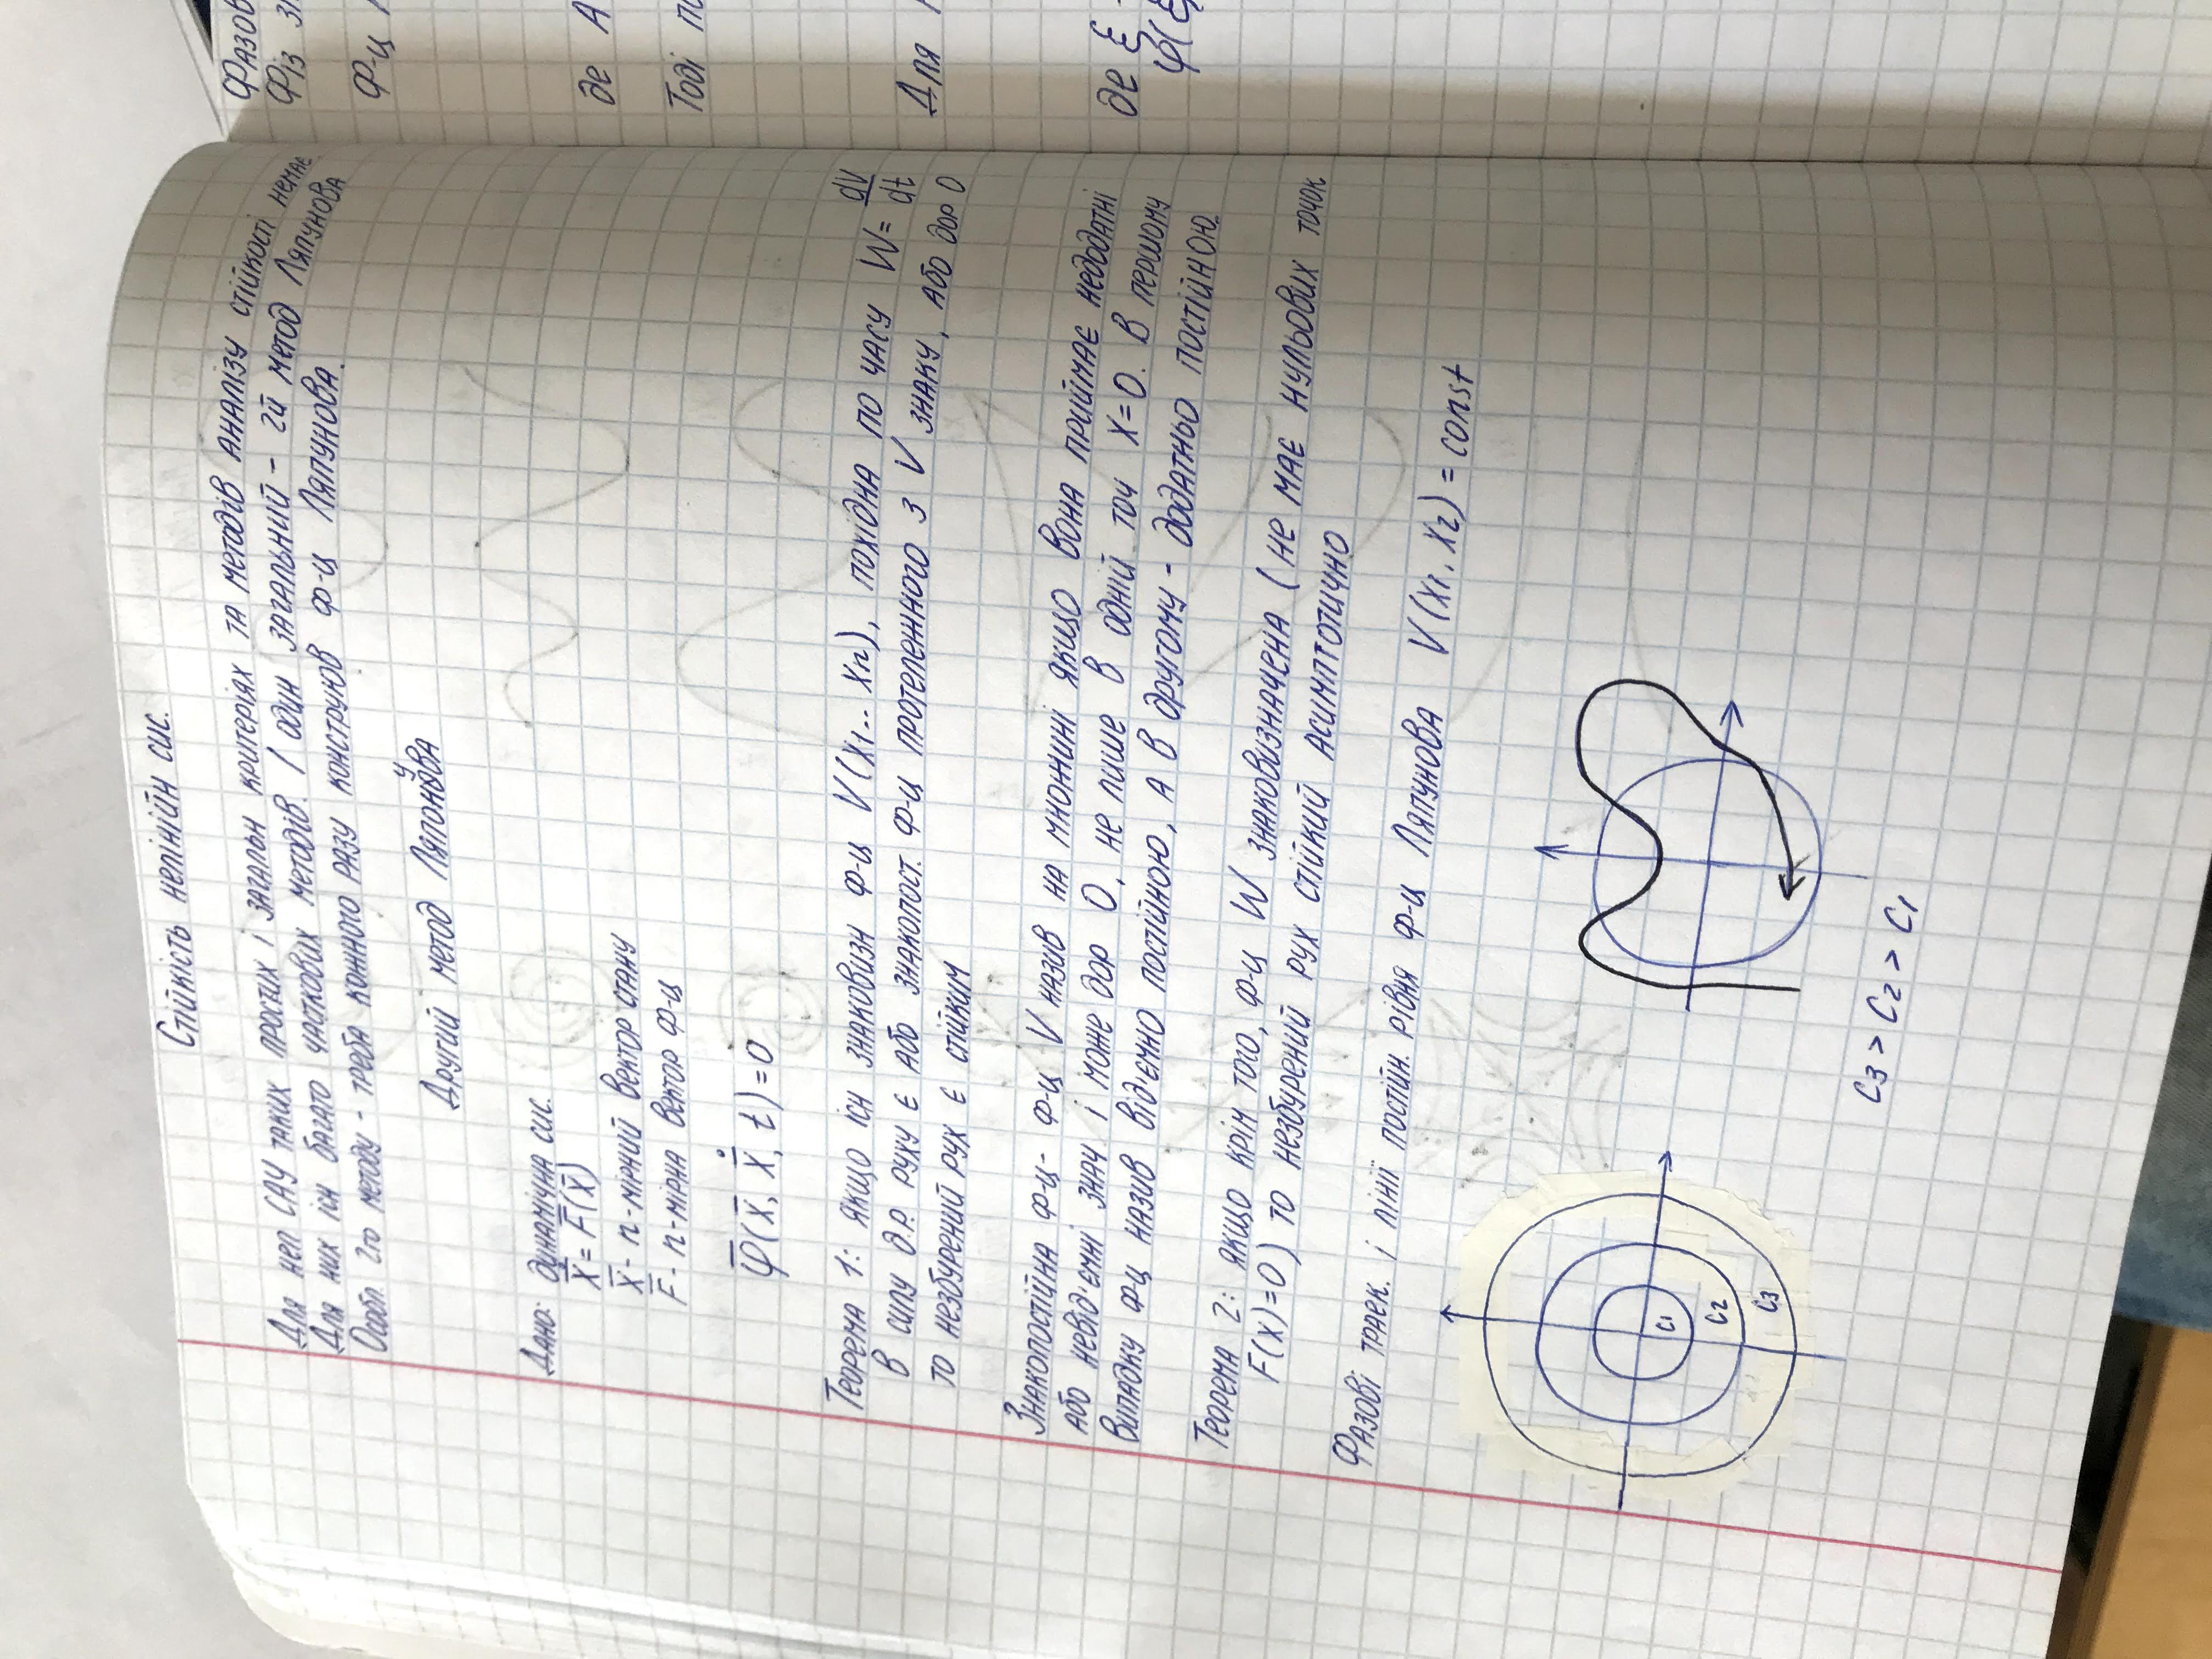 Стійкість нелінійн сис.
Для нел САУ таких простих і загальн критеріях та методів аналізу стійкості немає.
Для них існ багато часткових методів. І один загальний - 2й метод Ляпунова
Особл. 2го методу - треба кожного разу конструюв ф-ц Ляпунова.
у
Другий метод Ляпонова
Дано: динамічна сис.
ẋ̄ = F̄(x̄)
x̄ - n-мірний вектор стану
F̄ - n-мірна вектор ф-ц
φ̄(x̄, ẋ̄, t) = 0
Теорема 1: якщо існ знаковизн ф-ц V(x1.. xn), похідна по часу W= dV/dt
в силу д.р. руху є або знакопост. ф-ц протележного з V знаку, або дор 0
то незбурений рух є стійким
Знакопостійна ф-ц- ф-ц V назив на множині якщо вона приймає недодатні
або невід'ємні знач і може дор 0, не лише в одній точ x=0. В першому
випадку ф-ц назив від'ємно постійною, а в другому - додатньо постійною.
Теорема 2: якщо крім того, ф-ц W знаковизначена (не має нульових точок
F(x)=0) то незбурений рух стійкий асимптотично
Фазові траек. і лінії постійн. рівня ф-ц Ляпунова V(x1, x2) = const
C1
C2
C3
C3 > C2 > C1
Фазов
Фіз
Ф-ц
де А
Тоді
Для
де ξ -
φ(ξ